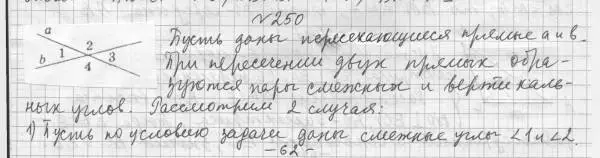 №250
a
b
1 2 3 4
Пусть даны пересекающиеся прямые a и b.
При пересечении двух прямых обра-
зуются пары смежных и вертикаль-
ных углов. Рассмотрим 2 случая:
1) Пусть по условию задачи даны смежные углы ∠1 и ∠2.
-62-